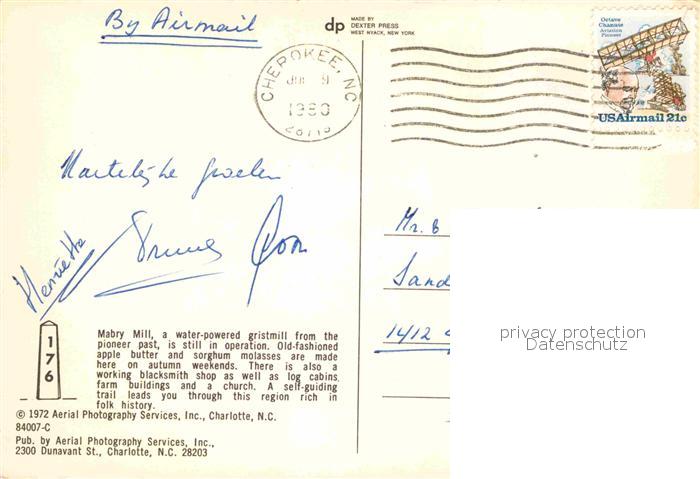 By Airmail
dp
MADE BY
DEXTER PRESS
WEST NYACK, NEW YORK
CHEROKEE, NC
1980
Octave
Chanute
Aviation
Pioneer
USAirmail 21c
Hartelijke groeten
Henriette
Mr. B
Sand
1412
privacy protection
Datenschutz
176
Mabry Mill, a water-powered gristmill from the
pioneer past, is still in operation. Old-fashioned
apple butter and sorghum molasses are made
here on autumn weekends. There is also a
working blacksmith shop as well as log cabins
farm buildings and a church. A self-guiding
trail leads you through this region rich in
folk history.
© 1972 Aerial Photography Services, Inc., Charlotte, N.C.
84007-C
Pub. by Aerial Photography Services, Inc.,
2300 Dunavant St., Charlotte, N.C. 28203